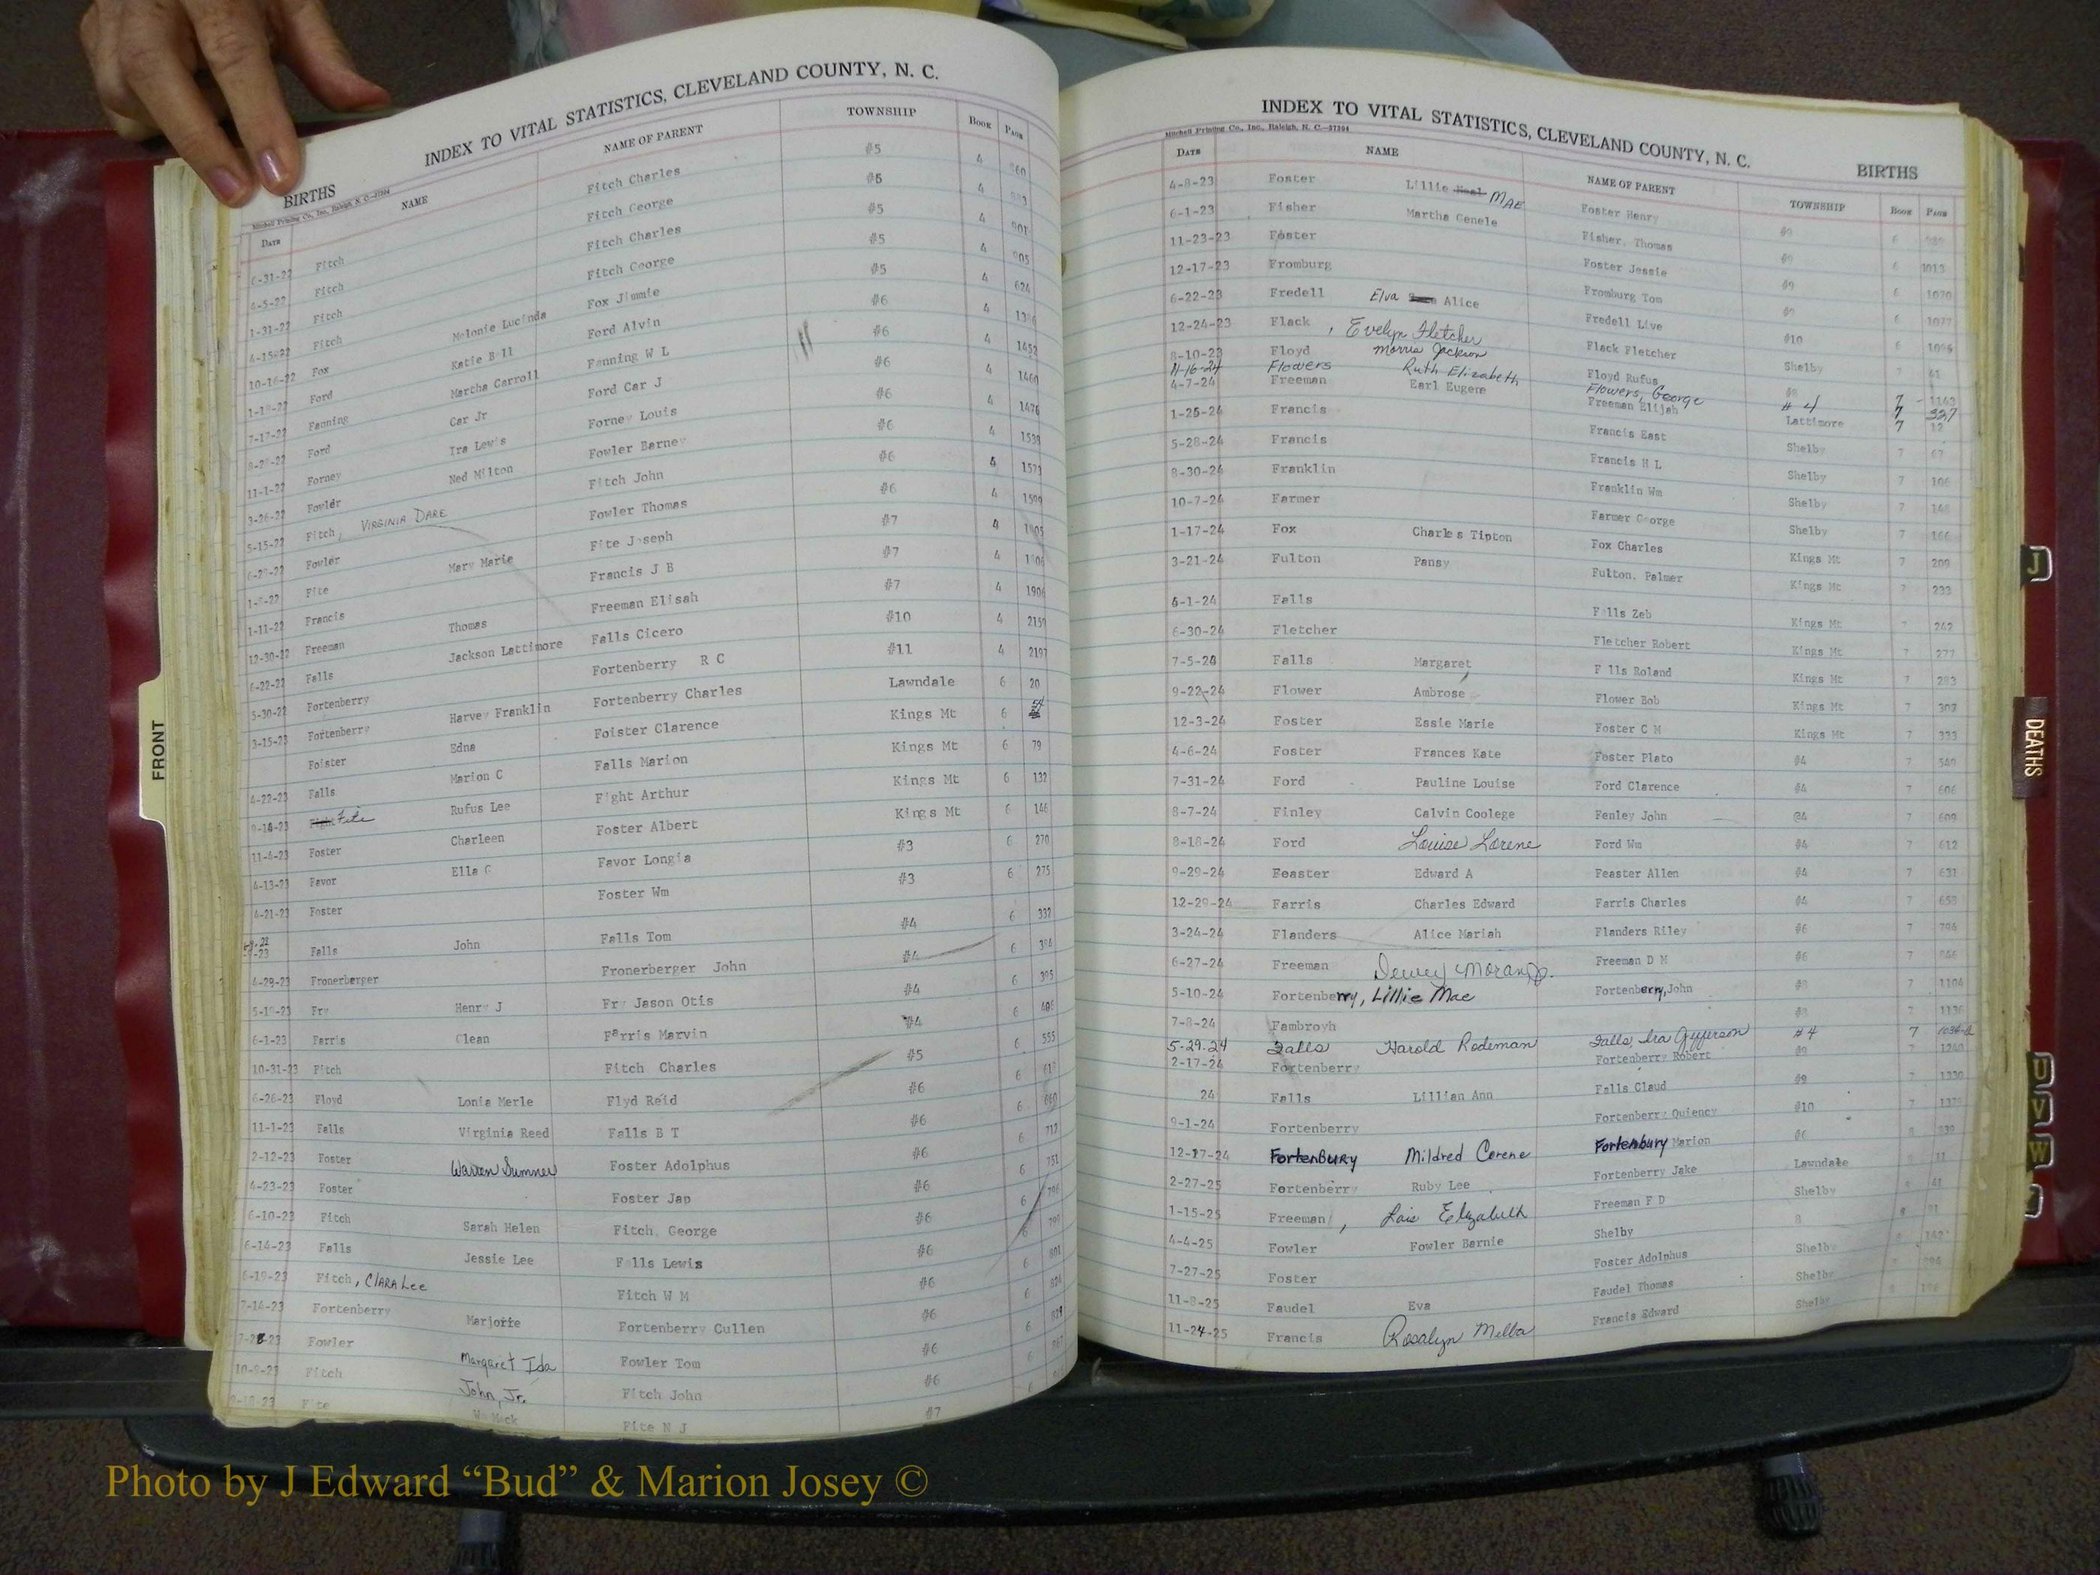 INDEX TO VITAL STATISTICS, CLEVELAND COUNTY, N. C.
BIRTHS
Mitchell Printing Co., Inc., Raleigh, N. C.
DATE NAME NAME OF PARENT TOWNSHIP BOOK PAGE
Fitch Fitch Charles #5 4
4-5-22 Fitch Fitch George #5 4
1-31-22 Fitch Fitch Charles #5 4
Fitch Fitch George #5 4
10-16-22 Fox Melonie Lucinda Fox Jimmie #5 4 624
Ford Katie Bell Ford Alvin #6 4
7-17-22 Fanning Martha Carroll Fanning W L #6 4 1452
Ford Car Jr Ford Car J #6 4 1460
11-1-22 Forney Ira Lewis Forney Louis #6 4 1476
3-26-22 Fowler Ned Milton Fowler Barney #6 4 1538
5-15-22 Fitch, VIRGINIA DARE Fitch John #6 4
Fowler Fowler Thomas #6 4 1599
Fite Mary Marie Fite Joseph #7 4
1-11-22 Francis Francis J B #7 4
12-30-22 Freeman Thomas Freeman Elisah #7 4 1906
6-22-22 Falls Jackson Lattimore Falls Cicero #10 4
5-30-22 Fortenberry Fortenberry R C #11 4 2197
3-15-23 Fortenberry Harvey Franklin Fortenberry Charles Lawndale 6 20
Foister Edna Foister Clarence Kings Mt 6
4-22-23 Falls Marion C Falls Marion Kings Mt 6 79
Fite Rufus Lee Fight Arthur Kings Mt 6 132
11-4-23 Foster Charleen Foster Albert Kings Mt 6 146
4-13-23 Favor Ella G Favor Longia #3 6 270
4-21-23 Foster Foster Wm #3 6 275
Falls John Falls Tom #4 6 332
4-29-23 Fronerberger Fronerberger John #4 6
5-19-23 Fry Henry J Fry Jason Otis #4 6 395
6-1-23 Farris Clean Farris Marvin #4 6
10-31-23 Fitch Fitch Charles #5 6 555
6-26-23 Floyd Lonia Merle Flyd Reid #6 6
11-1-23 Falls Virginia Reed Falls B T #6 6
2-12-23 Foster Warren Sumner Foster Adolphus #6 6 712
4-23-23 Foster Foster Jap #6 6 751
6-10-23 Fitch Sarah Helen Fitch George #6 6
6-14-23 Falls Jessie Lee Falls Lewis #6 6
6-19-23 Fitch, CLARA Lee Fitch W M #6 6
7-14-23 Fortenberry Marjorie Fortenberry Cullen #6 6
Fowler Margaret Ida Fowler Tom #6 6
10-9-23 Fitch John, Jr. Fitch John #6 6
Fite Fite N J #7
INDEX TO VITAL STATISTICS, CLEVELAND COUNTY, N. C.
BIRTHS
Mitchell Printing Co., Inc., Raleigh, N. C.
DATE NAME NAME OF PARENT TOWNSHIP BOOK PAGE
4-8-23 Foster Lillie MAE Foster Henry #9 6
6-1-23 Fisher Martha Genele Fisher, Thomas #9 6 1013
11-23-23 Foster Foster Jessie #9 6 1070
12-17-23 Fromburg Fromburg Tom #9 6 1077
6-22-23 Fredell Elva Alice Fredell Live #10 6
12-24-23 Flack, Evelyn Fletcher Flack Fletcher Shelby 7 61
8-10-23 Floyd Morris Jackson Floyd Rufus 7 1143
11-16-24 Flowers Ruth Elizabeth Flowers, George #4 7 327
4-7-24 Freeman Earl Eugene Freeman Elijah Lattimore 7 12
1-25-24 Francis Francis East Shelby 7 67
5-28-24 Francis Francis H L Shelby 7 106
8-30-24 Franklin Franklin Wm Shelby 7
10-7-24 Farmer Farmer George Shelby 7 166
1-17-24 Fox Charles Tipton Fox Charles Kings Mt 7 209
3-21-24 Fulton Pansy Fulton. Palmer Kings Mt 7 233
4-1-24 Falls Falls Zeb Kings Mt 7 242
6-30-24 Fletcher Fletcher Robert Kings Mt 7 277
7-5-24 Falls Margaret Falls Roland Kings Mt 7 283
9-22-24 Flower Ambrose Flower Bob Kings Mt 7 307
12-3-24 Foster Essie Marie Foster C M Kings Mt 7 333
4-6-24 Foster Frances Kate Foster Plato #4 7 549
7-31-24 Ford Pauline Louise Ford Clarence #4 7 606
8-7-24 Finley Calvin Coolege Fenley John @4 7 609
8-18-24 Ford Louise Lorene Ford Wm #4 7 612
9-29-24 Feaster Edward A Feaster Allen #4 7 631
12-29-24 Farris Charles Edward Farris Charles #4 7 658
3-24-24 Flanders Alice Mariah Flanders Riley #6 7 794
6-27-24 Freeman Dewey Moran Jr. Freeman D M #6 7 846
5-10-24 Fortenberry, Lillie Mae Fortenberry, John 7 1104
7-8-24 Fambroyh 7 1136
5-29-24 Falls Harold Rodeman Falls, Ira Jefferson #4 7
2-17-24 Fortenberry Fortenberry Robert #9 7 1240
24 Falls Lillian Ann Falls Claud #9 7 1330
9-1-24 Fortenberry Fortenberry Quiency #10 7
12-27-24 FortenBURY Mildred Corene Fortenbury Marion #6 8
2-27-25 Fortenberry Ruby Lee Fortenberry Jake Lawndale 11
1-15-25 Freeman, Lois Elizabeth Freeman F D Shelby 41
4-4-25 Fowler Fowler Bernie Shelby 8
7-27-25 Foster Foster Adolphus Shelby
11-8-25 Faudel Eva Faudel Thomas Shelby
11-24-25 Francis Rosalyn Melba Francis Edward Shelby
FRONT
J
DEATHS
U
V
W
Photo by J Edward “Bud” & Marion Josey ©